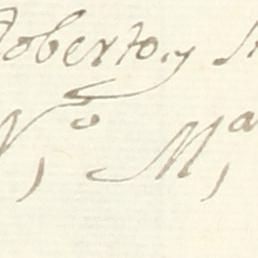 Roberto, y
N,º M,ª